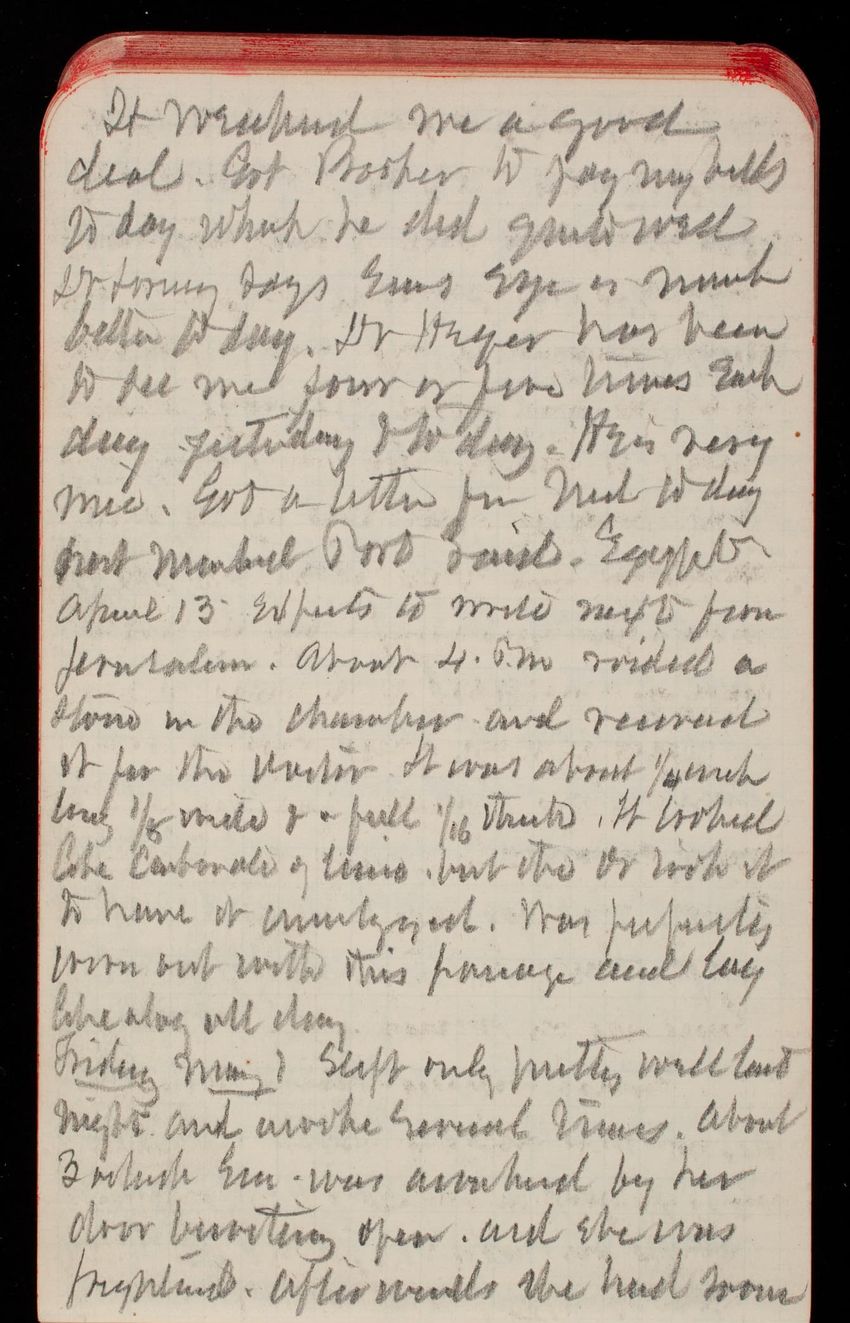 It weakened me a good
deal. Got Booker to pay my bills
to day which he did quite well
Dr Loring says Ems Eye is much
better to day. Dr Heyer has been
to see me four or five times Each
day yesterday & to day. He is very
nice. Got a letter fm Ned to day
post marked Port Said. Egypt
April 13 Expects to write next from
Jerusalem. About 4. P.M voided a
stone in the chamber and reserved
it for the Doctor It was about 1/4 inch
long 1/8 wide & a full 1/16 thick. It looked
like Carbonate of lime. but the Dr took it
to have it analyzed. Was perfectly
worn out with this passage and lay
like a log all day
Friday May Slept only pretty well last
night and awoke several times. About
3 oclock Em was awakened by her
door bursting open. and she was
frightened. Afterwards she had some